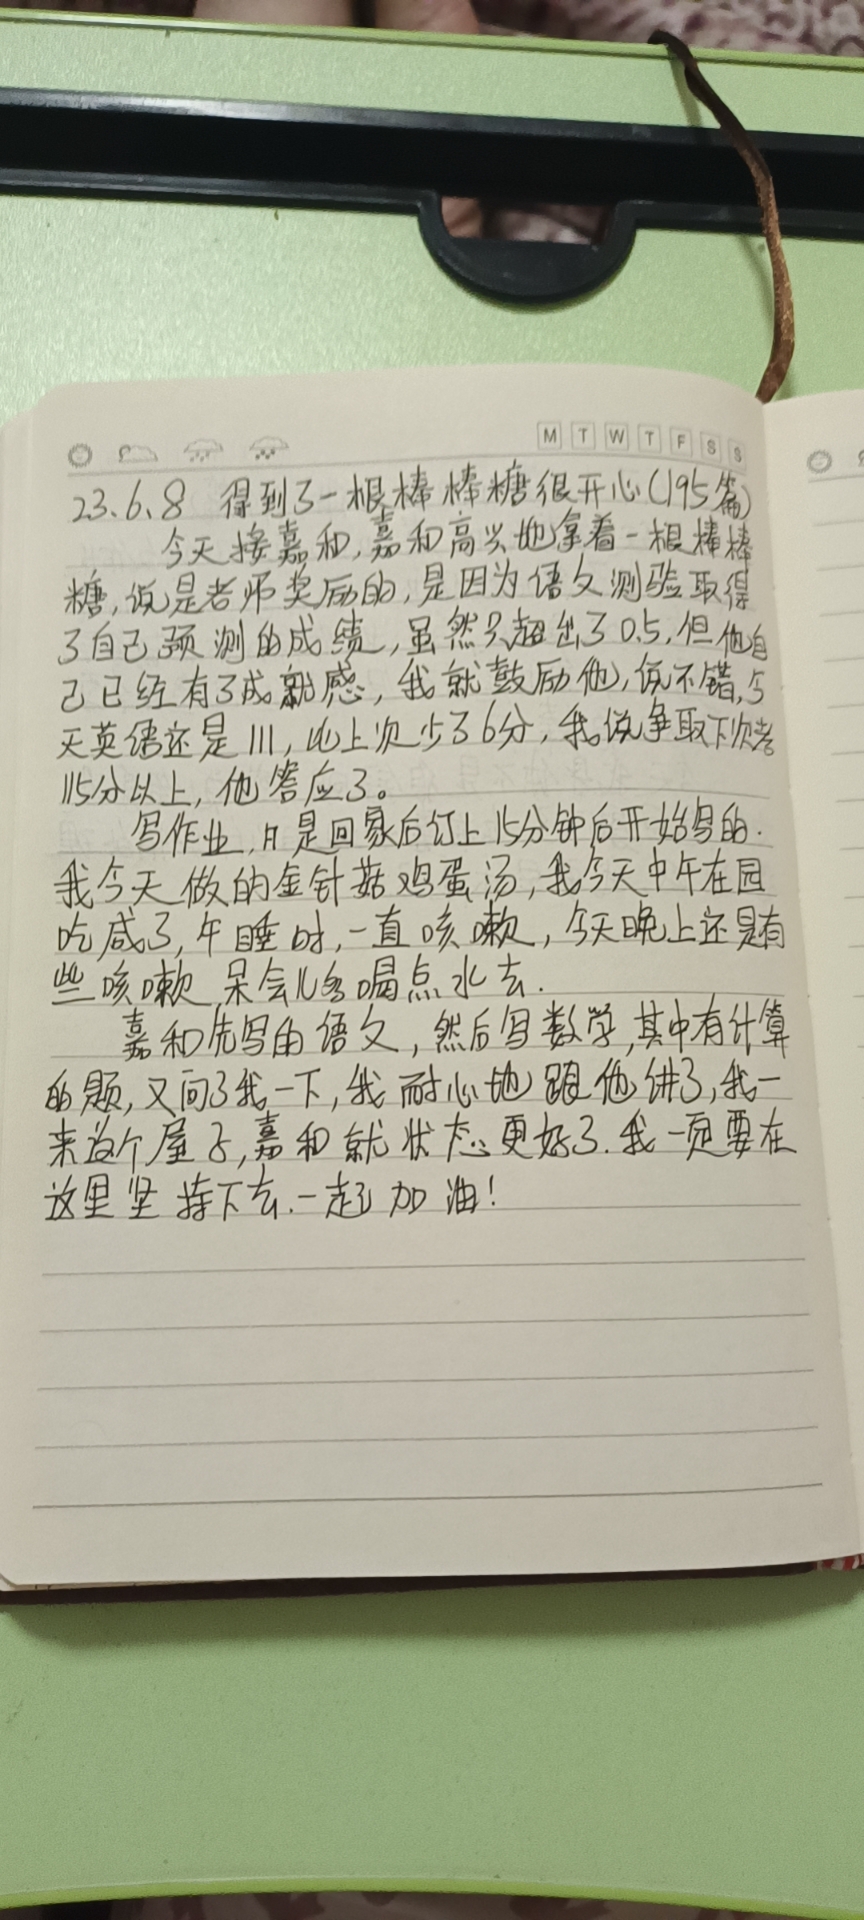 M T W T F S S
23.6.8 得到了一根棒棒糖很开心(195篇)
今天接嘉和,嘉和高兴地拿着一根棒棒
糖,说是老师奖励的,是因为语文测验取得
了自己预测的成绩,虽然只超出了0.5,但他自
己已经有了成就感,我就鼓励他,说不错,今
天英语还是111,比上次少了6分,我说争取下次考
115分以上,他答应了。
写作业,是回家后订上15分钟后开始写的.
我今天做的金针菇鸡蛋汤,我今天中午在园
吃咸了,午睡时,一直咳嗽,今天晚上还是有
些咳嗽,呆会儿多喝点水去.
嘉和先写的语文,然后写数学,其中有计算
的题,又问了我一下,我耐心地跟他讲了,我一
来这个屋子,嘉和就状态更好了.我一定要在
这里坚持下去.一起加油!